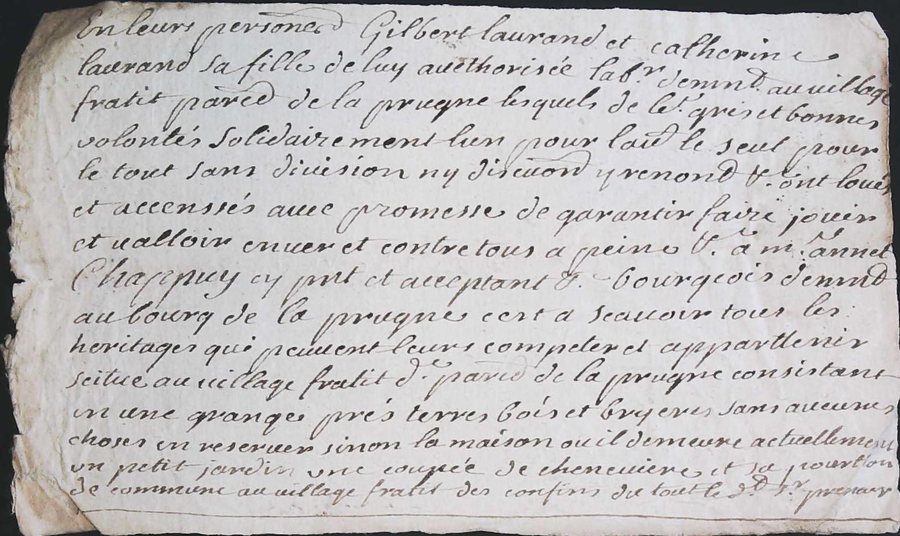 En leurs personnes Gilbert laurand et catherine
laurand sa fille de luy authorisée lab.r demt. au village
fratit paroed de la prugne lesquels de le.r gris et bonnes
volontés solidairement lun pour laud le seul pour
le tout sans division ny discuond y renond &.a ont loués
et accenssés avec promesse de garantir faire jouir
et valloir enver et contre tous a peine &.a a m.r annet
Chappuy cy pnt et acceptant &.a bourgeois demt
au bourg de la prugne cest a scavoir tous les
heritages qui peuvent leurs competer et appartlenir
scitue au village fratit d.e paroed de la prugne consistant
en une grange prés terres bois et bryeres sans aucunes
choses en reserver sinon la maison ou il demeure actuellement
un petit jardin une coupée de cheneviere et sa pourtion
de commune au village fratit des confins du tout le d.t s.r preneur